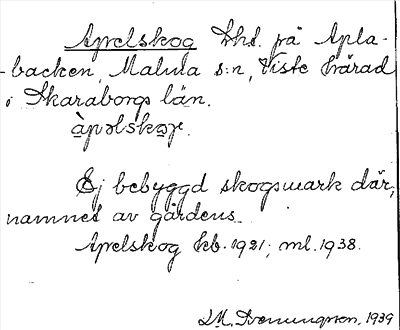 Apelskog Lhs. på Apla-
backen, Malula s:n, Viste härad
i Skaraborgs län.
àpəlskoγ.
Ej bebyggd skogsmark där,
namnet av gårdens
Apelskog kb. 1921; ml. 1938.
1939